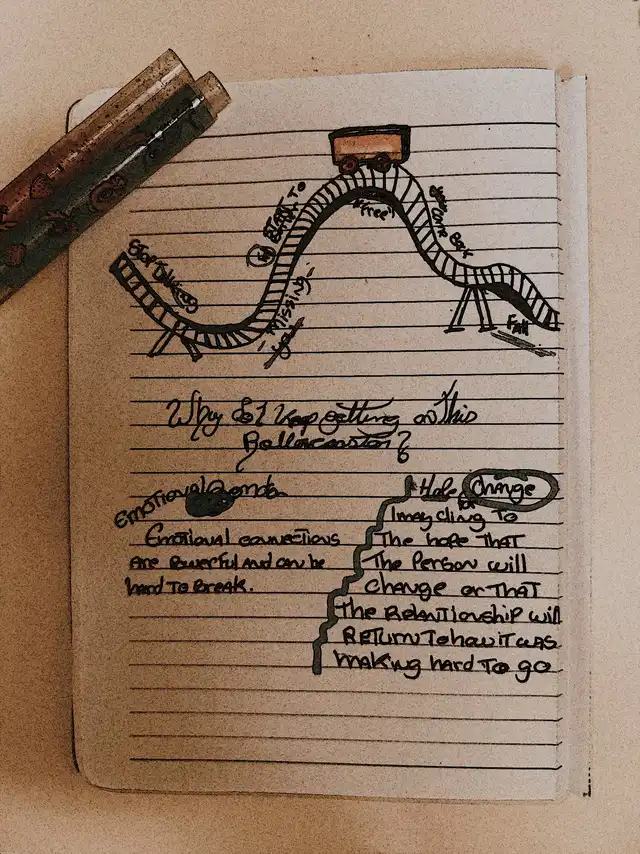 START TO
Missing
you
"free"
you come Back
Fall
Why do I keep getting on This
Rollercoaster?
Emotional Bonds
Emotional connections
are powerful and can be
hard to Break.
Hope for Change
I may cling to
The hope That
The Person will
change or That
The Relationship will
Return To how it was
Making hard To go